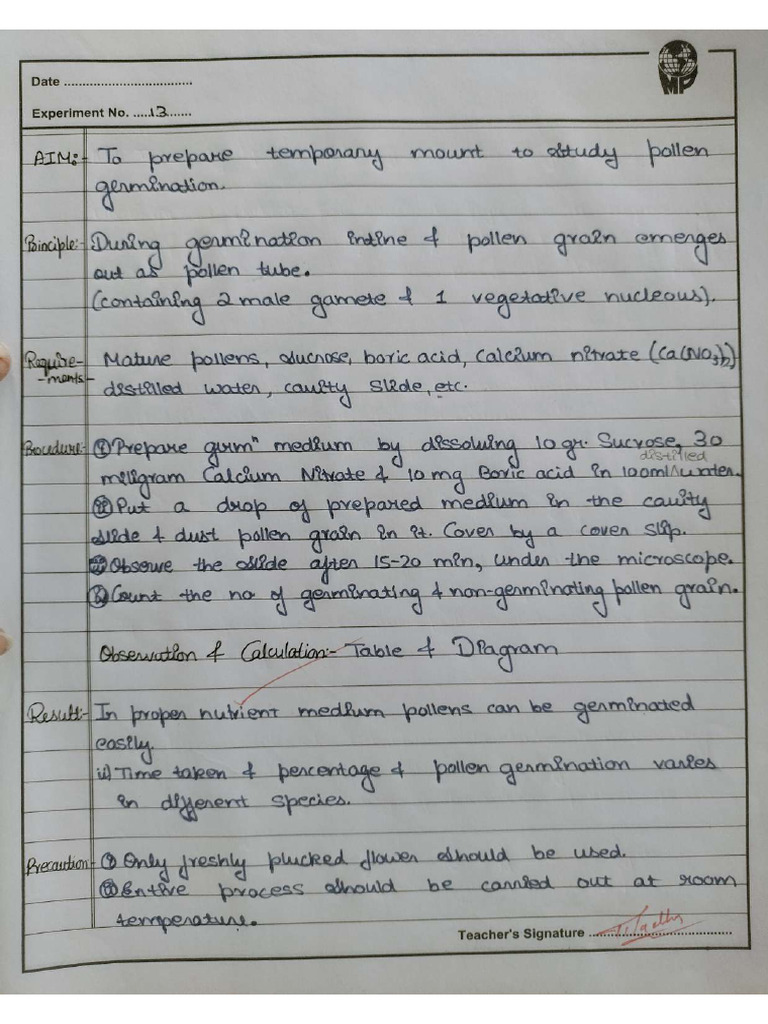 MP
Date ....................................
Experiment No. .....13.......
AIM:- To prepare temporary mount to study pollen
germination.
Principle:- During germination intine & pollen grain emerges
out as pollen tube.
(containing 2 male gamete & 1 vegetative nucleous).
Require- Mature pollens, sucrose, boric acid, calcium nitrate (Ca(NO3)2)
-ments- distilled water, cavity slide, etc.
Procedure:- (i) Prepare germⁿ medium by dissolving 10 gr. Sucrose, 30
distilled
miligram Calcium Nitrate & 10 mg Boric acid in 100ml^water.
(ii) Put a drop of prepared medium in the cavity
slide & dust pollen grain in it. Cover by a cover slip.
(iii) Observe the slide after 15-20 min, under the microscope.
(iv) Count the no of germinating & non-germinating pollen grain.
Observation & Calculation:- Table & Diagram
Result:- In proper nutrient medium pollens can be germinated
easily.
ii) Time taken & percentage & pollen germination varies
in different species.
Precaution- (i) Only freshly plucked flower should be used.
(ii) Entire process should be carried out at room
temperature.
Teacher's Signature ....................................